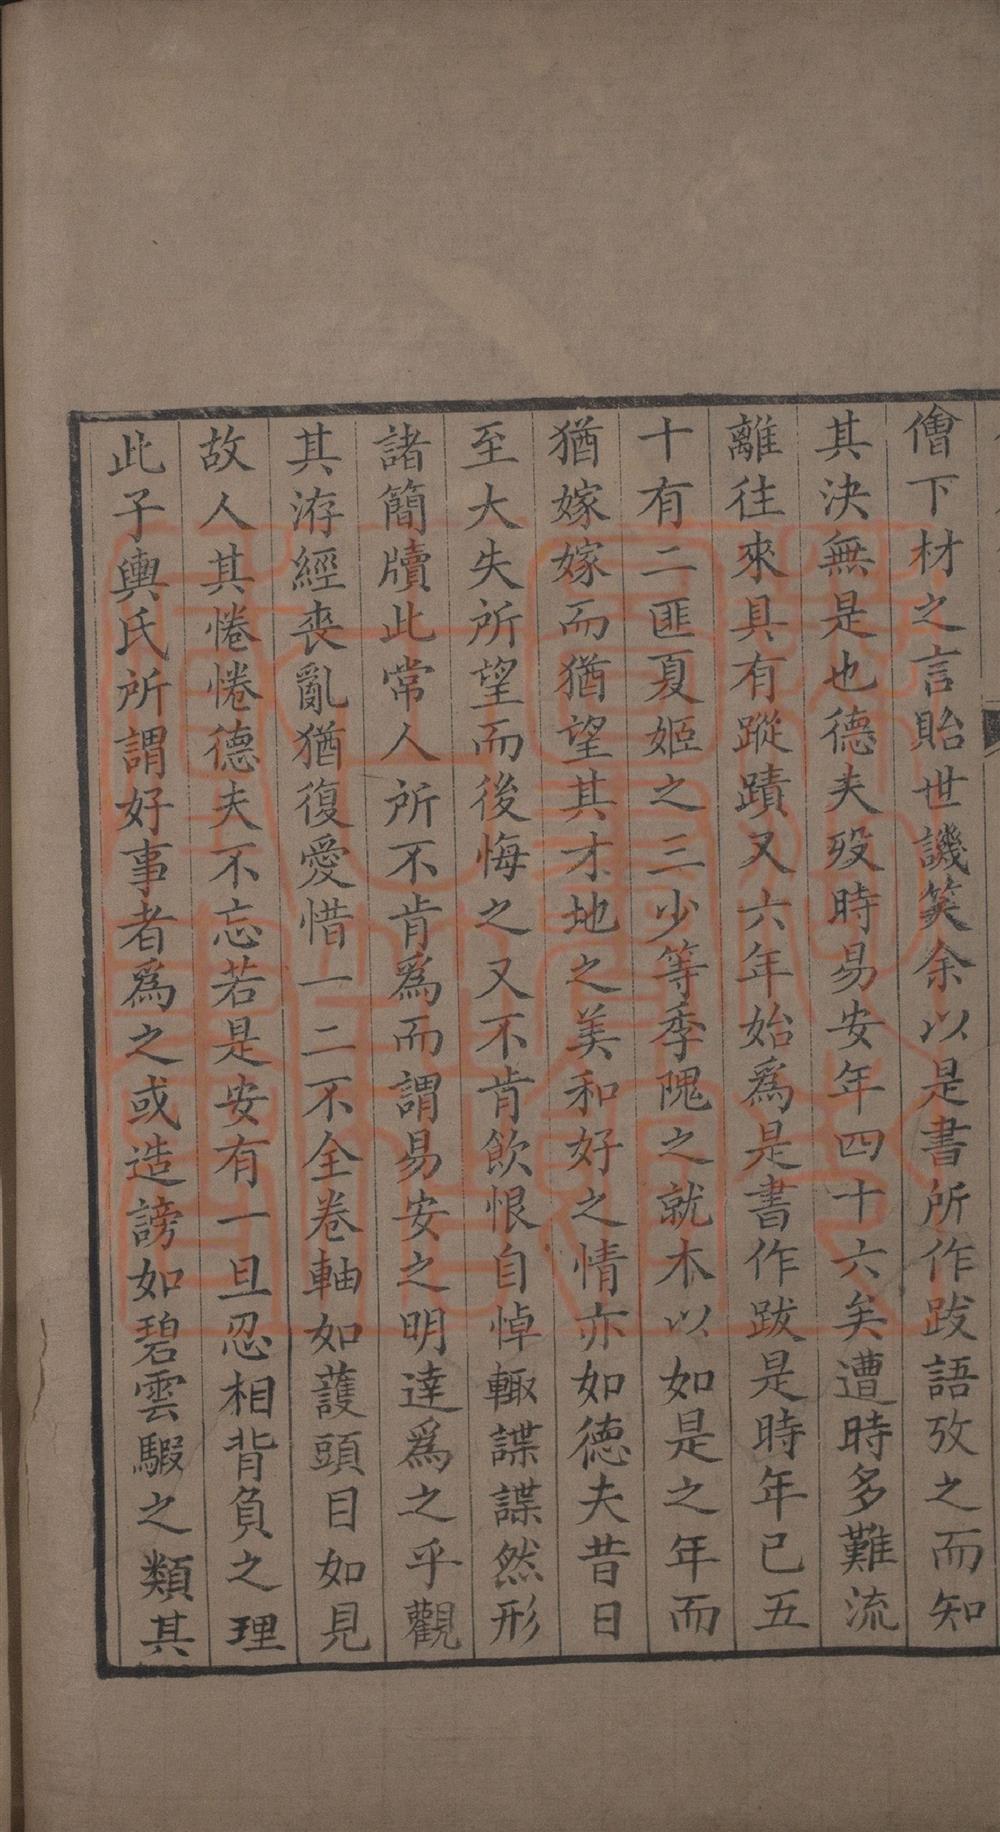 儈下材之言貽世譏笑余以是書所作跋語攷之而知
其決無是也德夫歿時易安年四十六矣遭時多難流
離往來具有蹤蹟又六年始爲是書作跋是時年已五
十有二匪夏姬之三少等季隗之就木以如是之年而
猶嫁嫁而猶望其才地之美和好之情亦如德夫昔日
至大失所望而後悔之又不肯飲恨自悼輒諜諜然形
諸簡牘此常人所不肯爲而謂易安之明達爲之乎觀
其洊經喪亂猶復愛惜一二不全卷軸如護頭目如見
故人其惓惓德夫不忘若是安有一旦忍相背負之理
此子輿氏所謂好事者爲之或造謗如碧雲騢之類其